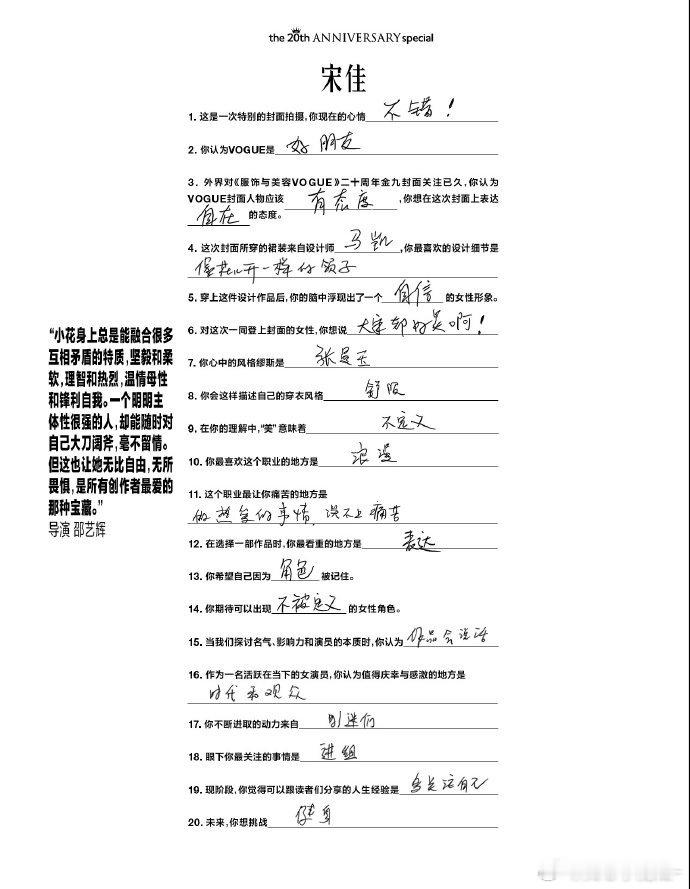 the 20th ANNIVERSARY special
宋佳
1. 这是一次特别的封面拍摄，你现在的心情 不错！
2. 你认为VOGUE是 好朋友
3. 外界对《服饰与美容VOGUE》二十周年金九封面关注已久，你认为
VOGUE封面人物应该 有态度 ，你想在这次封面上表达
自在 的态度。
4. 这次封面所穿的裙装来自设计师 马凯 ，你最喜欢的设计细节是
像花儿开一样的领子
5. 穿上这件设计作品后，你的脑中浮现出了一个 自信 的女性形象。
6. 对这次一同登上封面的女性，你想说 大家都好美啊！
7. 你心中的风格缪斯是 张曼玉
8. 你会这样描述自己的穿衣风格 舒服
9. 在你的理解中，“美”意味着 不定义
10. 你最喜欢这个职业的地方是 浪漫
11. 这个职业最让你痛苦的地方是
做热爱的事情，谈不上痛苦
12. 在选择一部作品时，你最看重的地方是 表达
13. 你希望自己因为 角色 被记住。
14. 你期待可以出现 不被定义 的女性角色。
15. 当我们探讨名气、影响力和演员的本质时，你认为 作品会说话
16. 作为一名活跃在当下的女演员，你认为值得庆幸与感激的地方是
时代和观众
17. 你不断进取的动力来自 影迷们
18. 眼下你最关注的事情是 进组
19. 现阶段，你觉得可以跟读者们分享的人生经验是 多关注自己
20. 未来，你想挑战 健身
“小花身上总是能融合很多
互相矛盾的特质，坚毅和柔
软，理智和热烈，温情母性
和锋利自我。一个明明主
体性很强的人，却能随时对
自己大刀阔斧，毫不留情。
但这也让她无比自由，无所
畏惧，是所有创作者最爱的
那种宝藏。”
导演 邵艺辉